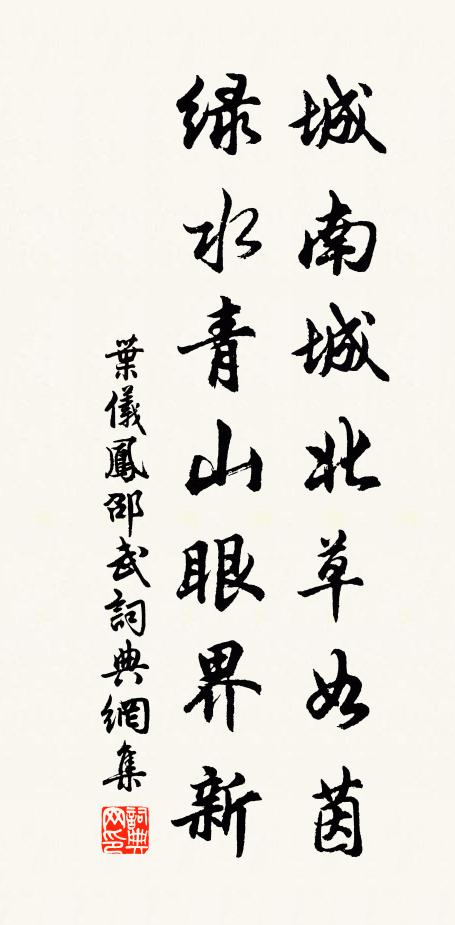 城南城北草如茵
绿水青山眼界新
葉儀鳳邵武詞典網集
詞典网印